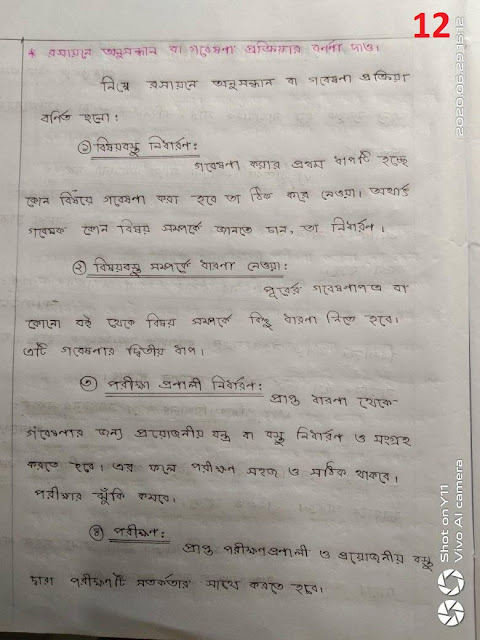 12
* রসায়নে অনুসন্ধান বা গবেষণা প্রক্রিয়ার বর্ননা দাও।
নিম্নে রসায়নে অনুসন্ধান বা গবেষণা প্রক্রিয়া
বর্নিত হলো:
① বিষয়বস্তু নির্ধারন:
গবেষণা করার প্রথম ধাপটি হচ্ছে
কোন বিষয়ে গবেষণা করা হবে তা ঠিক করে নেওয়া। অর্থাৎ
গবেষক কোন বিষয় সম্পর্কে জানতে চান, তা নির্ধারন।
② বিষয়বস্তু সম্পর্কে ধারনা নেওয়া:
পূর্বের গবেষণাপত্র বা
কোনো বই থেকে বিষয় সম্পর্কে কিছু ধারনা নিতে হবে।
এটি গবেষণার দ্বিতীয় ধাপ।
③ পরীক্ষা প্রনালী নির্ধারন:
প্রাপ্ত ধারনা থেকে
গবেষণার জন্য প্রয়োজনীয় বস্তু বা বস্তু নির্ধারন ও সংগ্রহ
করতে হবে। এর ফলে পরীক্ষন সহজ ও সঠিক থাকবে।
পরীক্ষার ঝুঁকি কমবে।
④ পরীক্ষন:
প্রাপ্ত পরীক্ষণপ্রনালী ও প্রয়োজনীয় বস্তু
দ্বারা পরীক্ষণটি সতর্কতার সাথে করতে হবে।
2020.06.29 15:12
Shot on Y11
Vivo AI camera